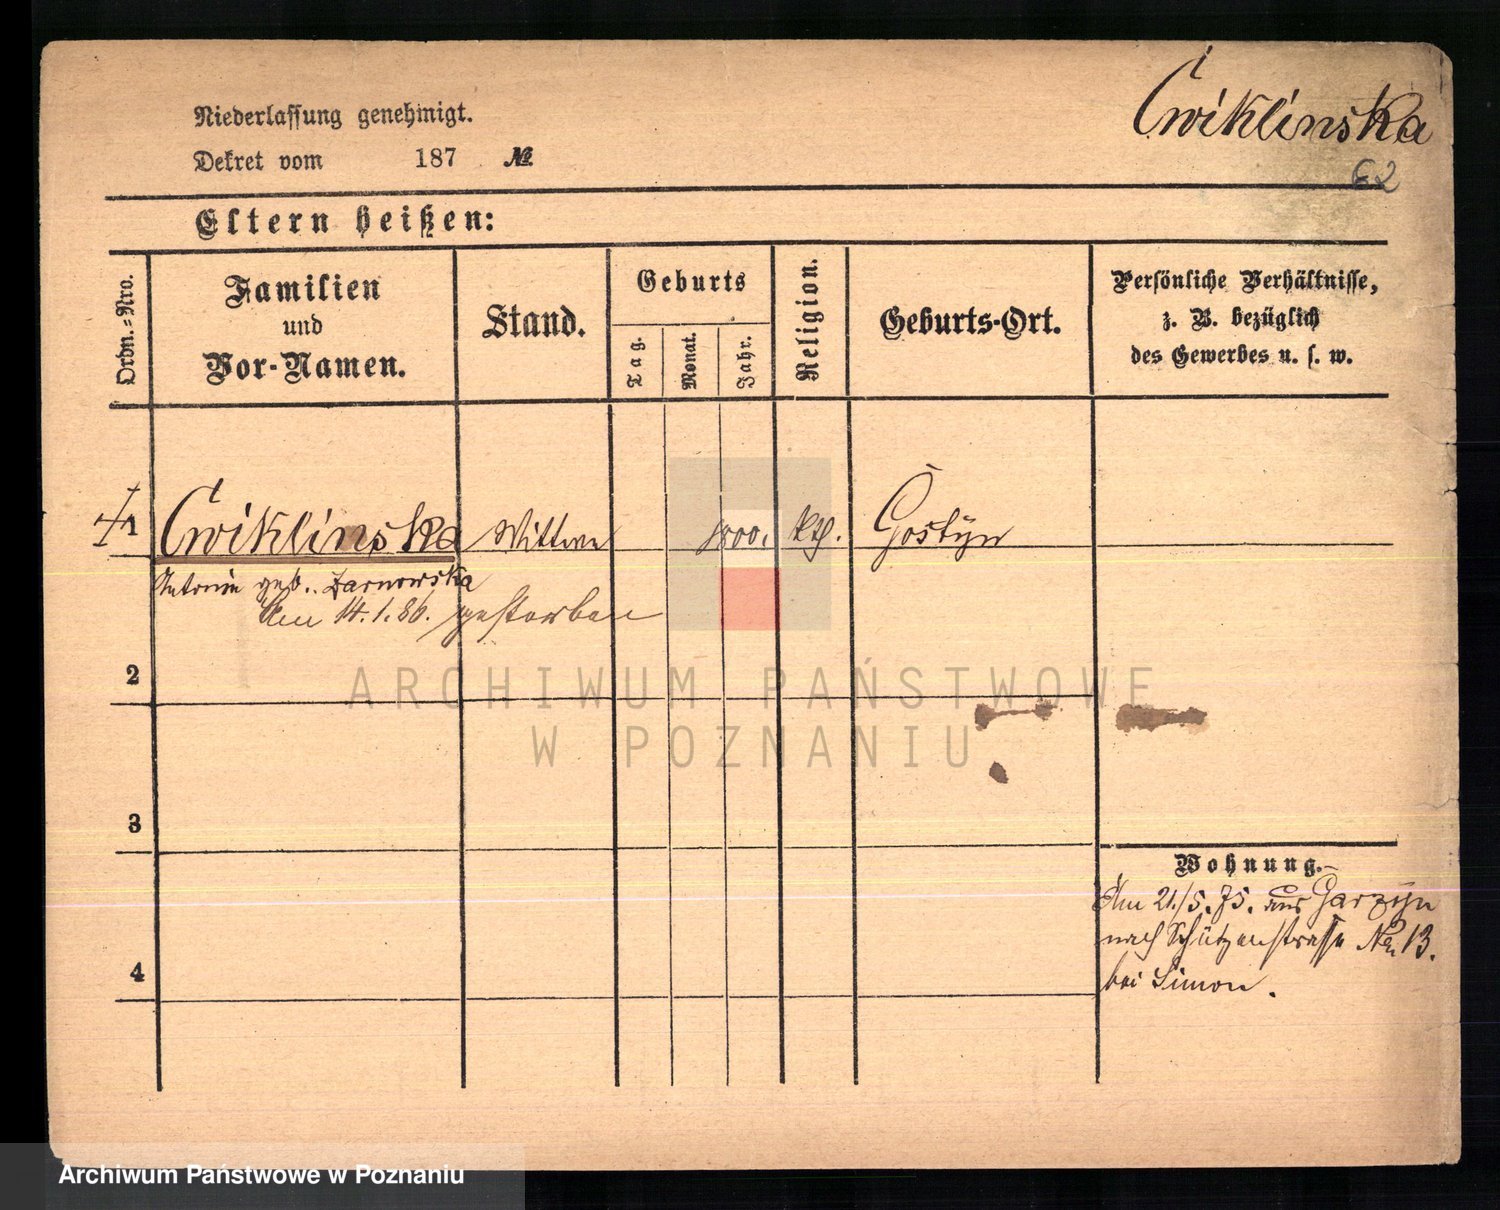 Ćwiklinska
62
Niederlassung genehmigt.
Dekret vom 187 №
Eltern heißen:
Ordn.-Nro.
Familien
und
Vor-Namen.
Stand.
Geburts
Tag.
Monat.
Jahr.
Religion.
Geburts-Ort.
Persönliche Verhältnisse,
z. B. bezüglich
des Gewerbes u. s. w.
1 Ćwiklinska Wittwe 1800. kth. Gostÿn
Antonie geb. Zarnowska
Am 14.1.86. gestorben
2
3
4
Wohnung.
Am 21./5.75. aus Garzÿn
nach Schützenstrasse No 13.
bei Simon.
ARCHIWUM PAŃSTWOWE
W POZNANIU
Archiwum Państwowe w Poznaniu